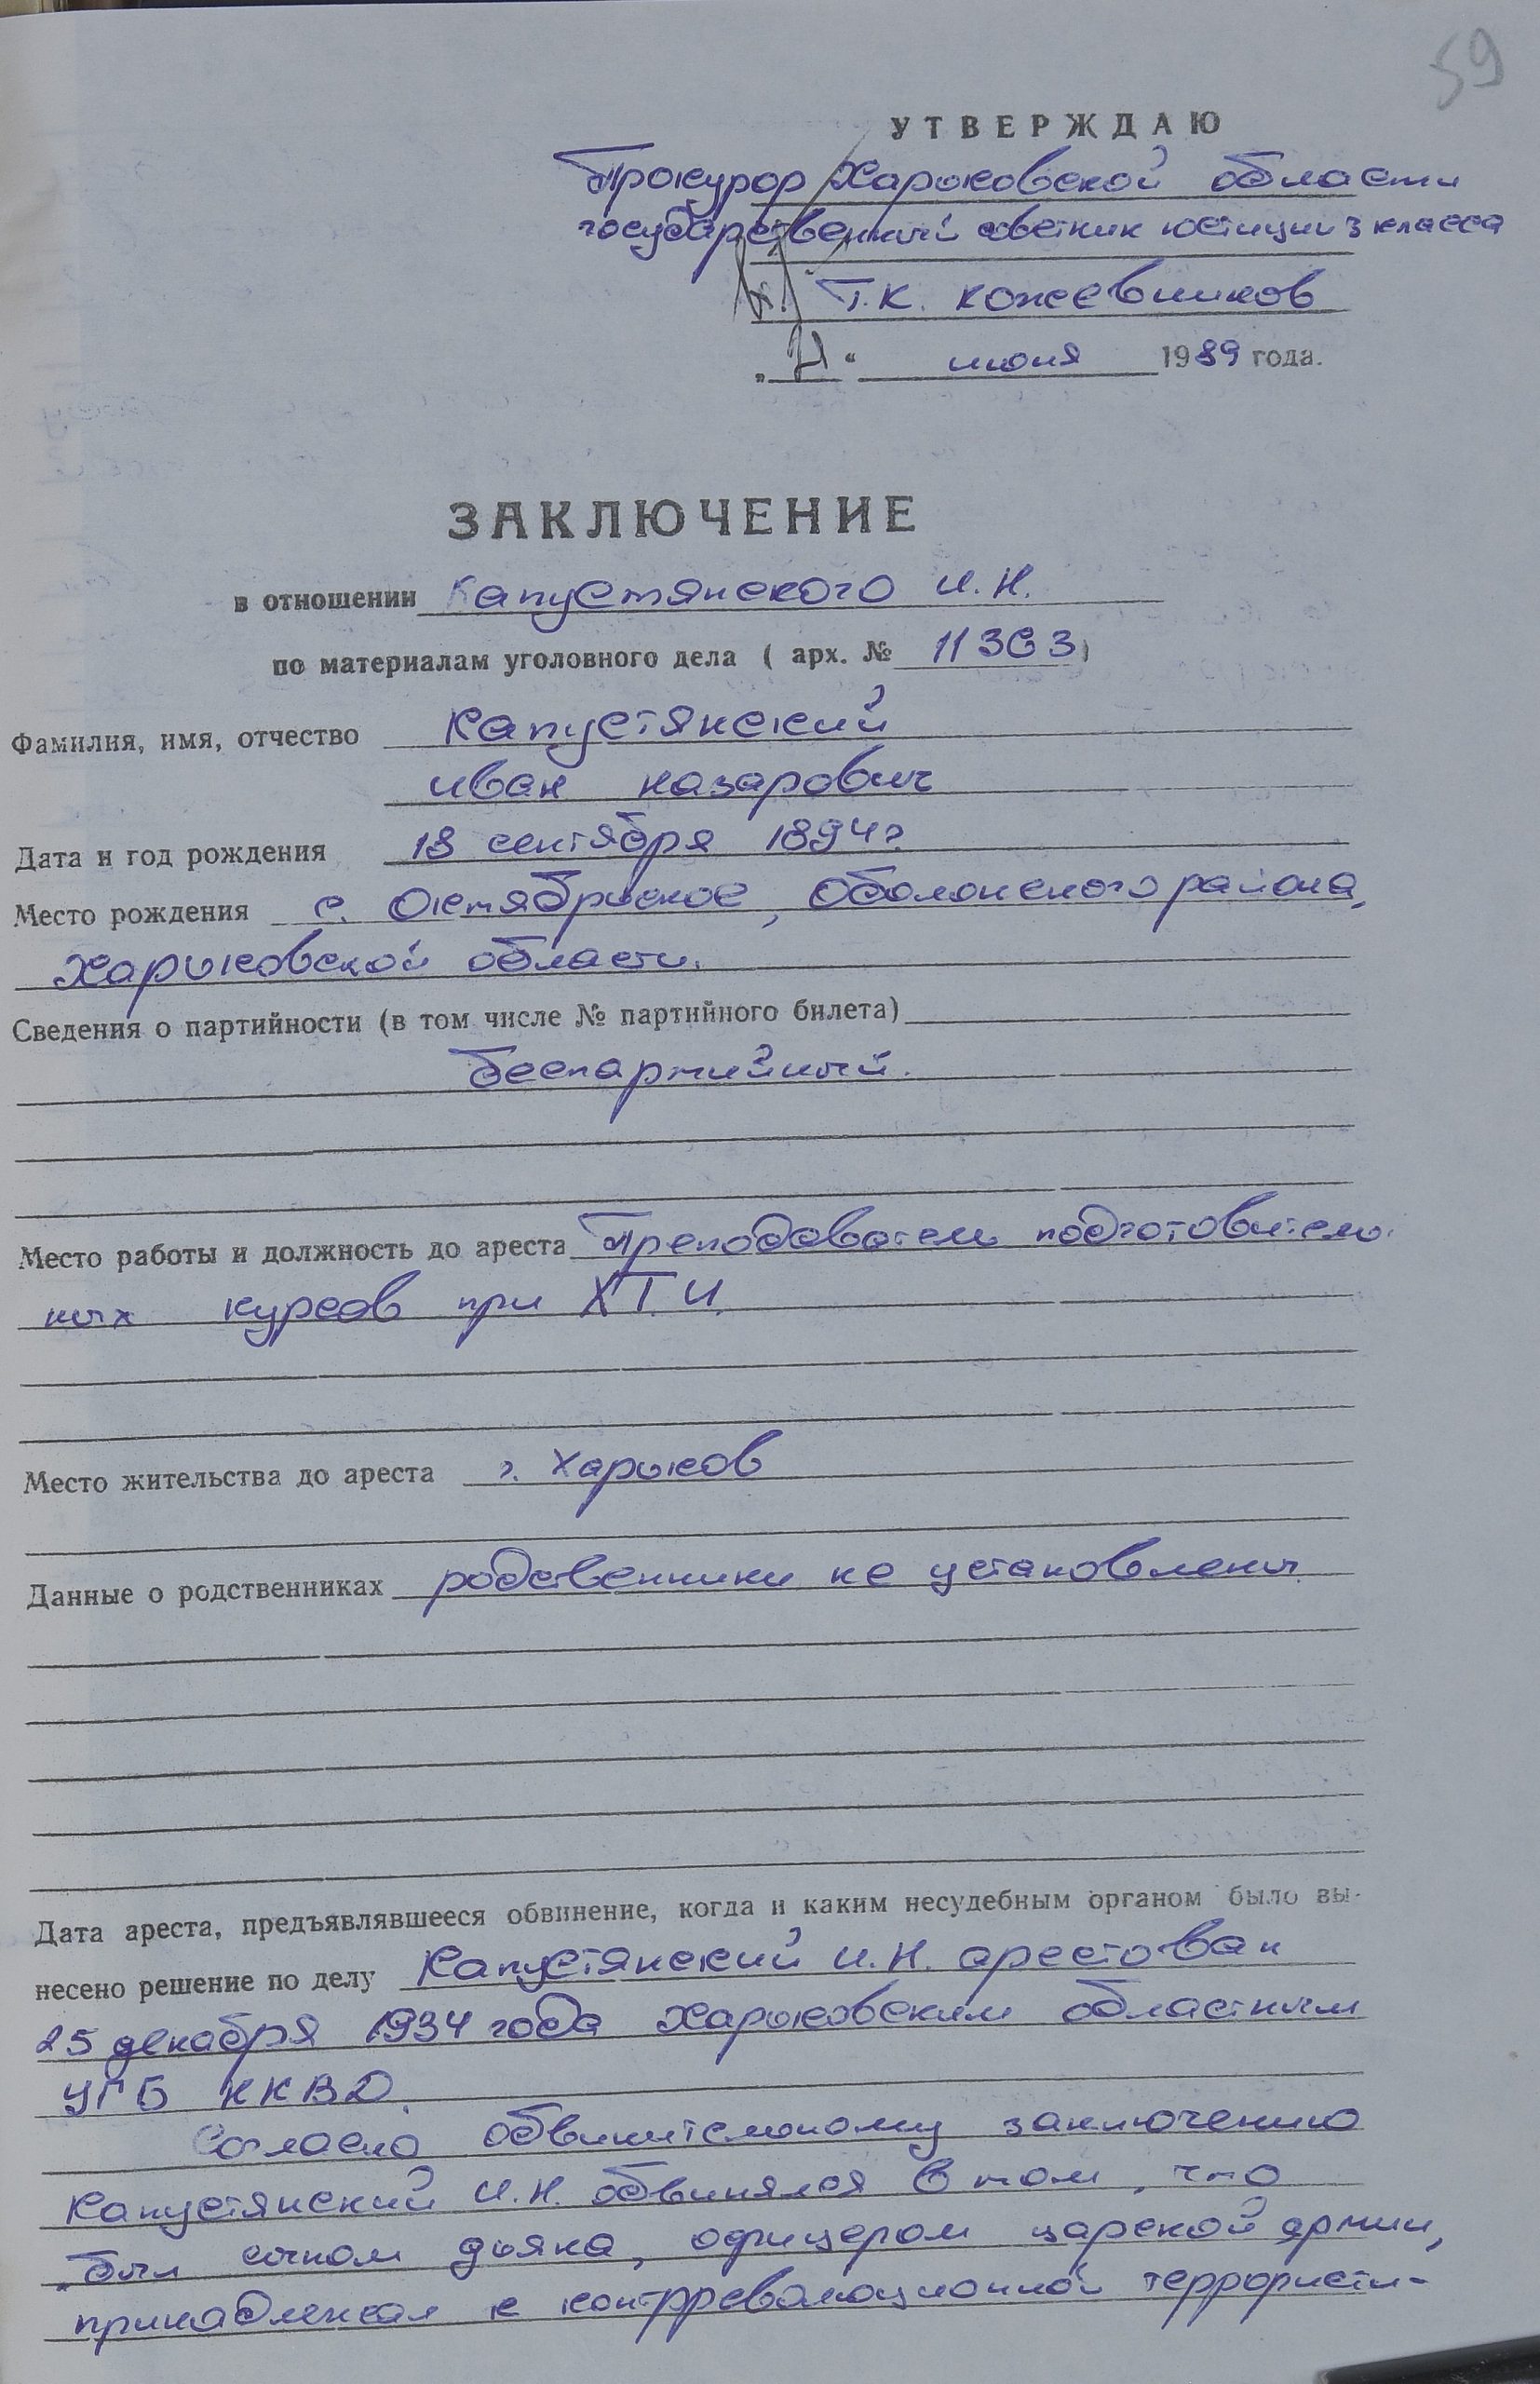 59
УТВЕРЖДАЮ
Прокурор Харьковской области
государственный советник юстиции 3 класса
Г.К. Кожевников
" " июня 1989 года.
ЗАКЛЮЧЕНИЕ
в отношении Капустянского И.Н.
по материалам уголовного дела ( арх. № )
Фамилия, имя, отчество Капустянский
Иван Назарович
Дата и год рождения 18 сентября 1894 г.
Место рождения с. Октябрьское, Оболонского района,
Харьковской области.
Сведения о партийности (в том числе № партийного билета)
беспартийный.
Место работы и должность до ареста Преподаватель подготовитель-
ных курсов при ХТИ.
Место жительства до ареста г. Харьков
Данные о родственниках родственники не установлены
Дата ареста, предъявлявшееся обвинение, когда и каким несудебным органом было вы-
несено решение по делу Капустянский И.Н. арестован
25 декабря 1934 года Харьковским областным
УГБ НКВД.
Согласно обвинительному заключению
Капустянский И.Н. обвинялся в том, что
"был сыном дьяка, офицером царской армии,
принадлежал к контрреволюционной террористи-